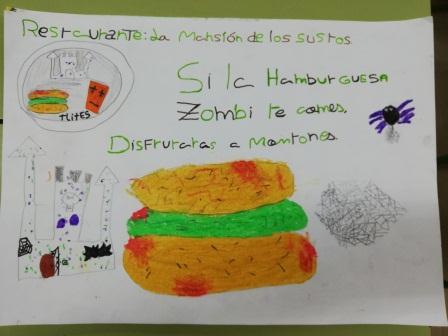 Restaurante: La Mansión de los sustos
Si la Hamburguesa
Zombi te comes,
Disfrutaras a montones
TLITES